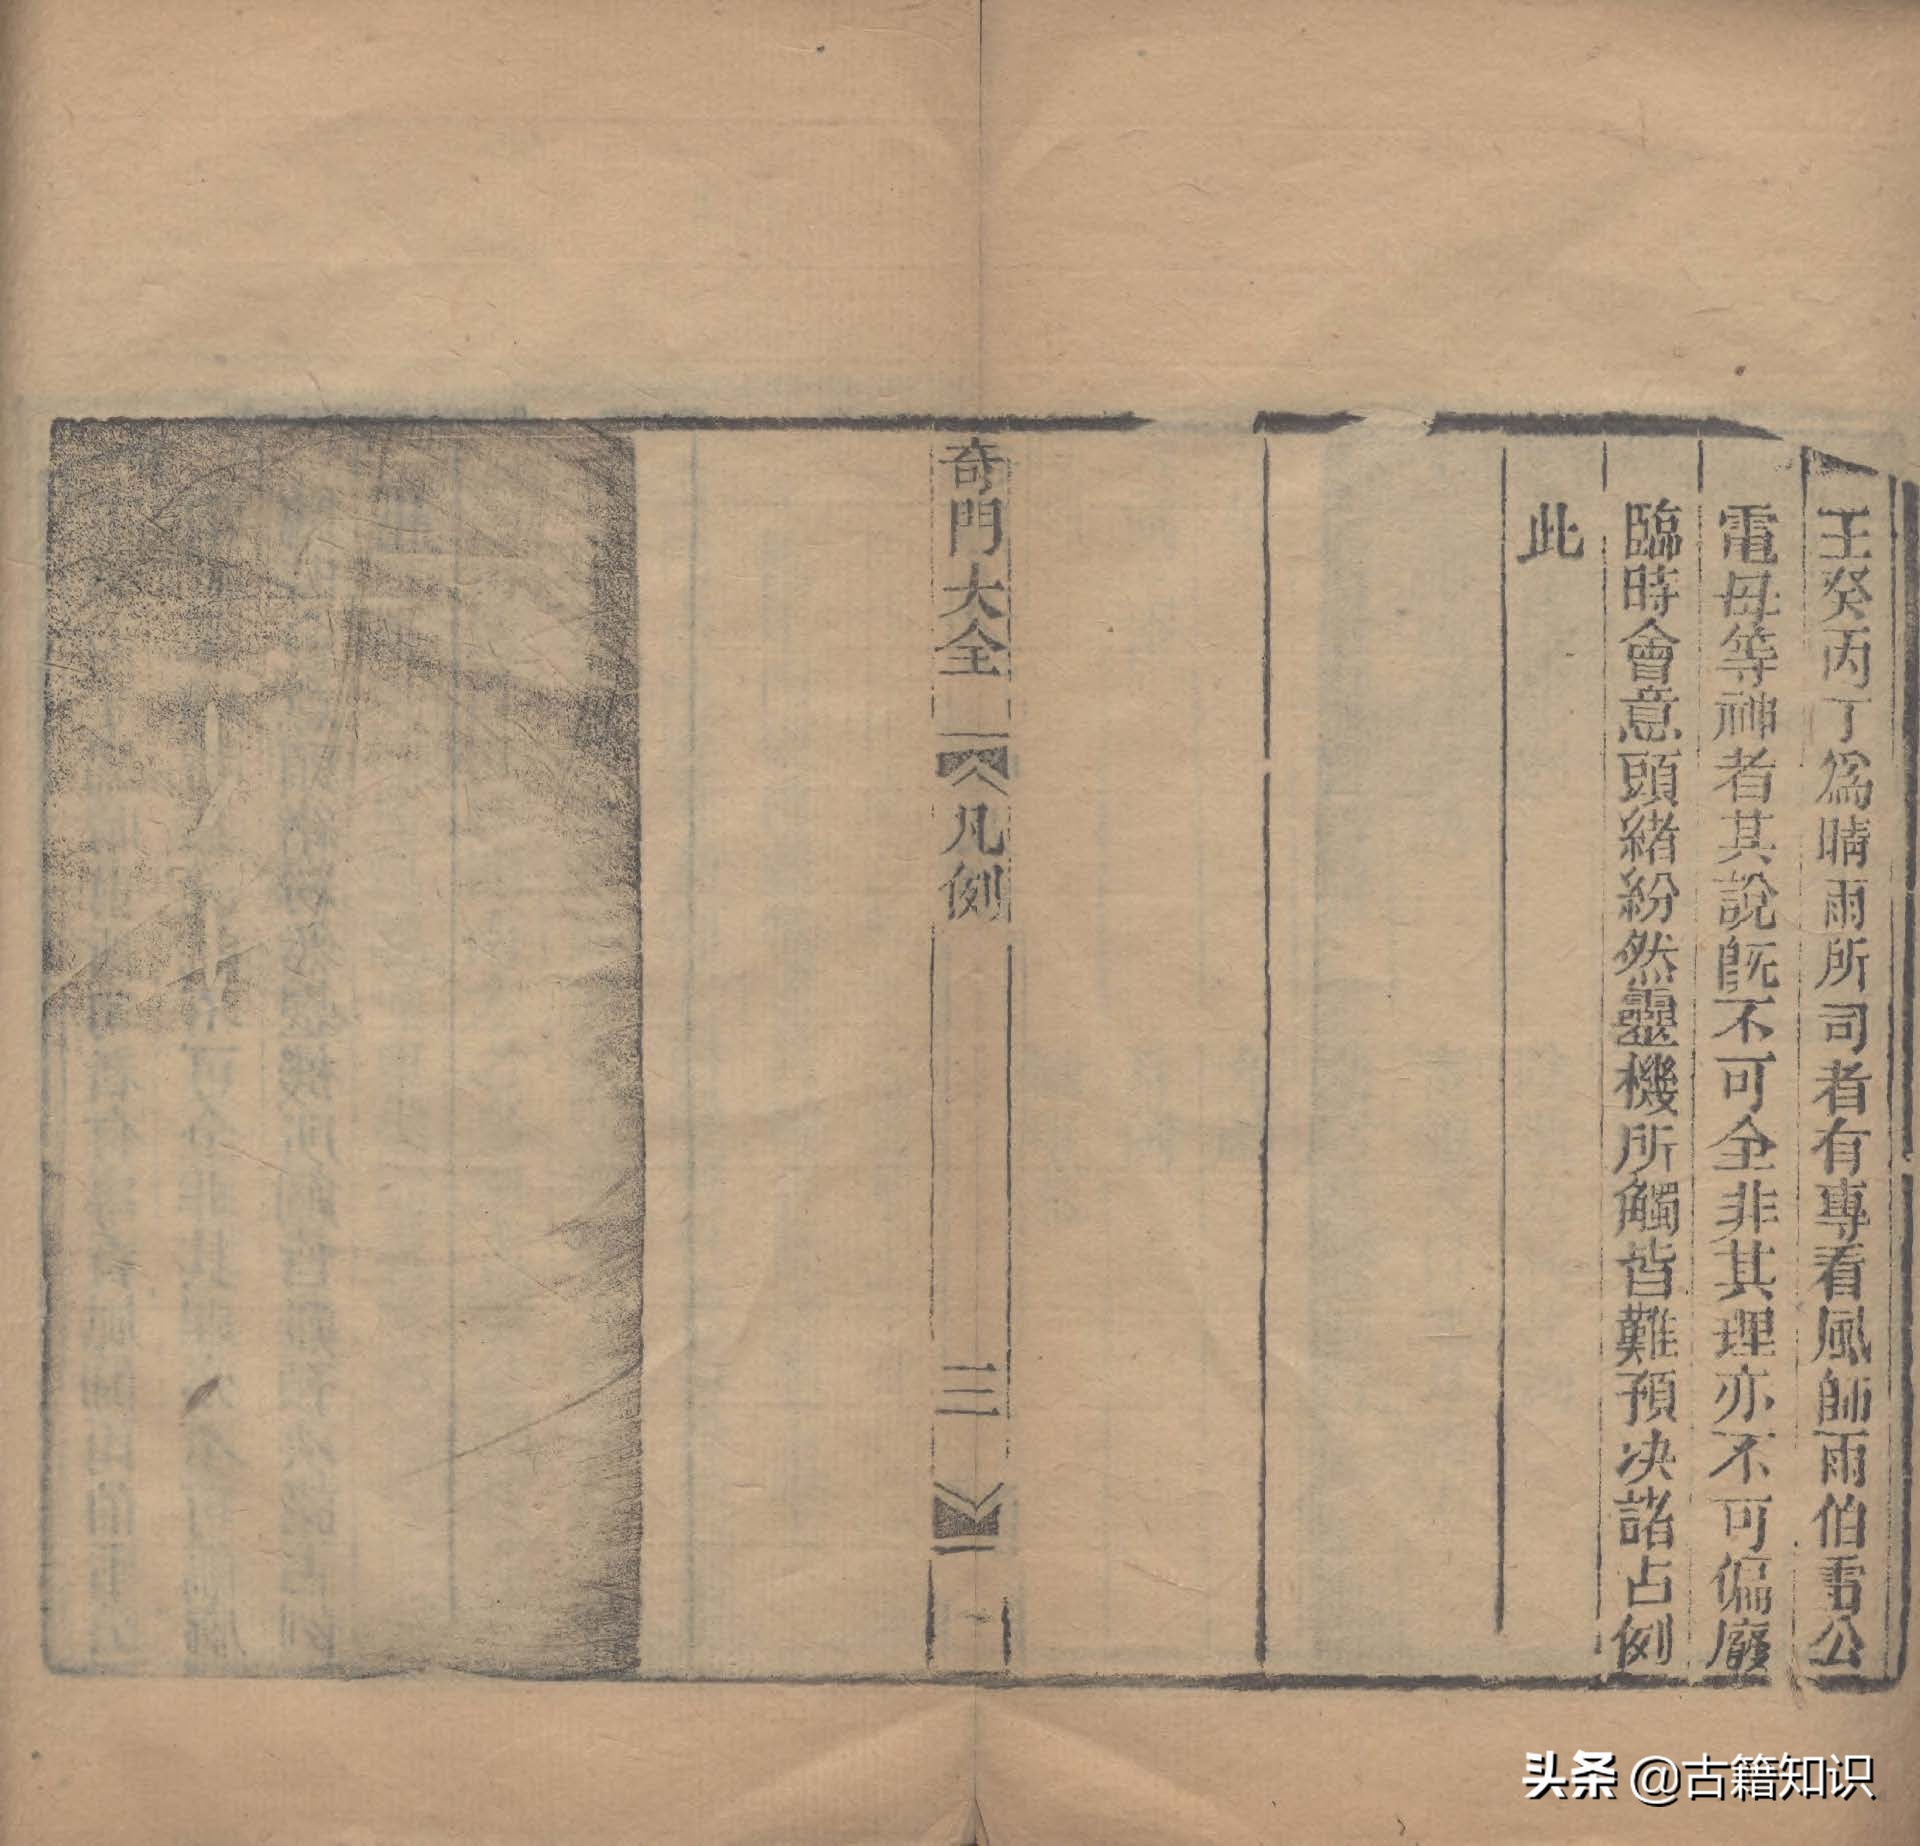 壬癸丙丁爲晴雨所司者有專看風師雨伯雷公
電母等神者其說既不可全非其理亦不可偏廢
臨時會意頭緒紛然靈機所觸皆難預决諸占例
此
奇門大全 凡例 三
头条 @古籍知识